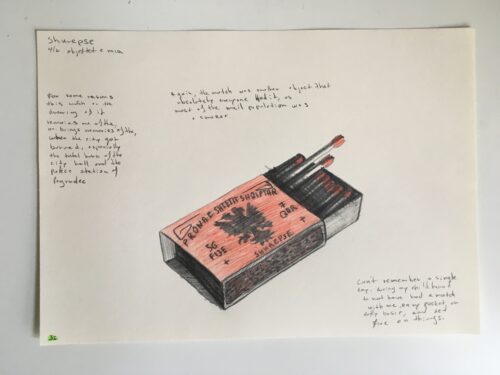 Shkrepse
4/6 objektet e mia
For some reasons
this match or the
drawing of it
remains me of the,
or brings memories of the,
when the city got
burned, especially
the total burn of the
city hall and the
police station of
Pogradec
Again, the match was another object that
absolutely everyone had it, as
most of the male population was
a smoker
PRONA E SHTETIT SHQIPTAR
50
FIJE
7
QDR
+
+
SHKREPSE
Can't remember a single
day, during my childhood
to not have had a match
with me, on my pocket, on
daily basis, and set
fire on things.